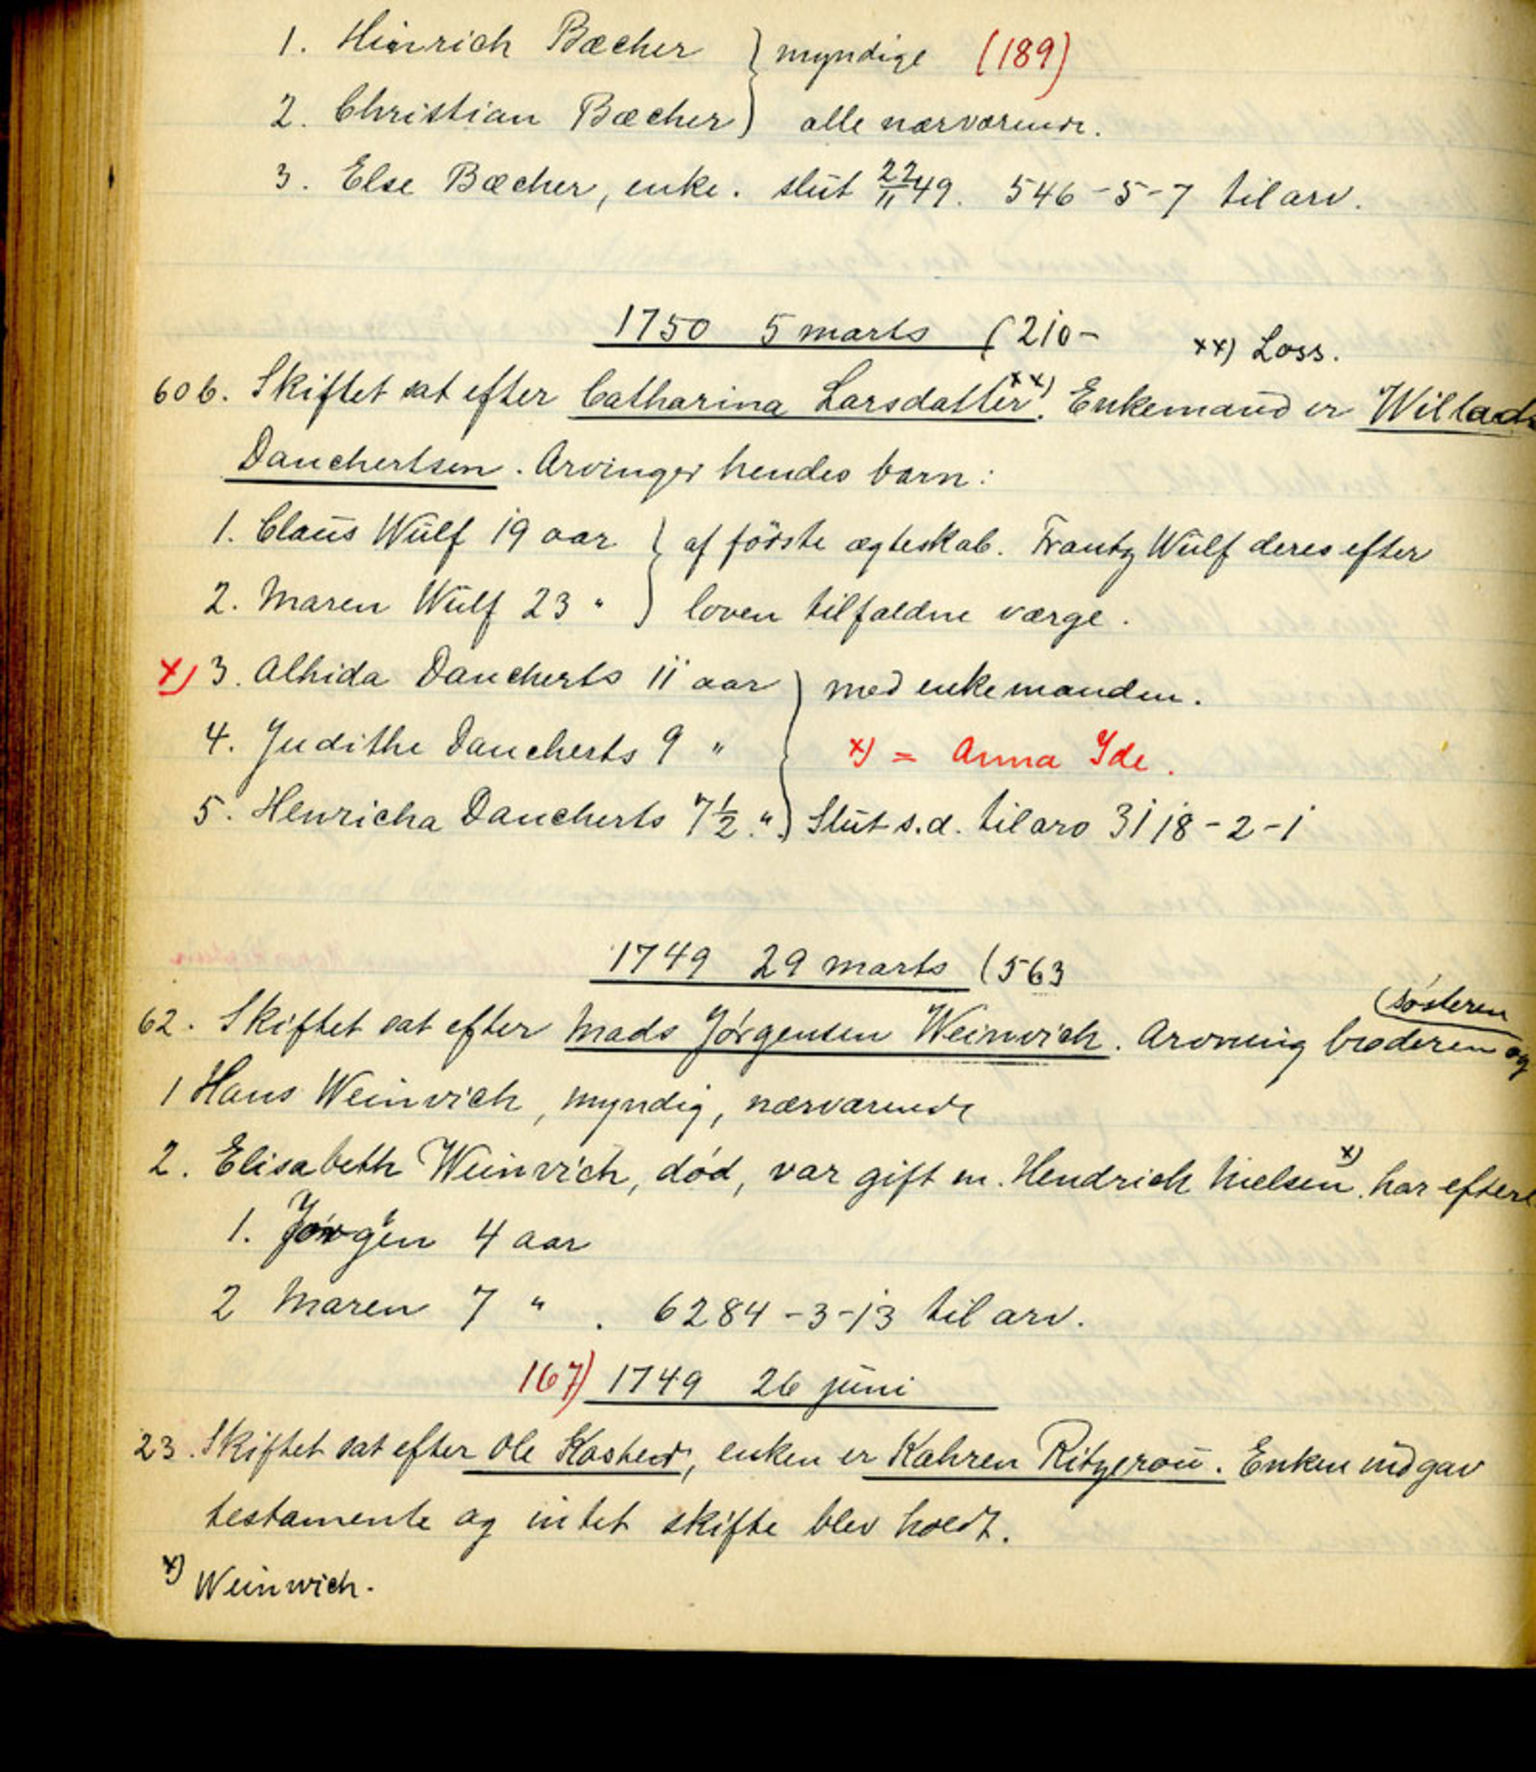 1. Hinrich Bæcher } myndige (189)
2. Christian Bæcher } alle nærværende.
3. Else Bæcher, enke. slut 22/11 49. 546-5-7 til arv.
1750 5 marts (210-
xx) Loss.
606. Skiftet sat efter Catharina Larsdatter xx). Enkemand er Willads
Danchertsen. Arvinger hendes børn:
1. Claus Wulf 19 aar } af første ægteskab. Frantz Wulf deres efter
2. Maren Wulf 23 " } loven tilfaldne værge.
x) 3. Alhida Dancherts 11 aar } med enkemanden.
4. Judithe Dancherts 9 " x) = Anna Ide.
5. Henricha Dancherts 7 1/2 " } Slut s.d. til arv 3118-2-1
1749 29 marts (563
(søsteren
62. Skiftet sat efter Mads Jørgensen Weinwich. Arvning broderen og
1 Hans Weinvich, myndig, nærværende
2. Elisabeth Weinvich, død, var gift m. Hendrich Nielsen x). har efterl
1. Jørgen 4 aar
2 Maren 7 " . 6284-3-13 til arv.
167) 1749 26 juni
23. Skiftet sat efter Ole , enken er Kahren Ritzerou. Enken udgav
testamente og intet skifte blev holdt.
x) Weinwich.